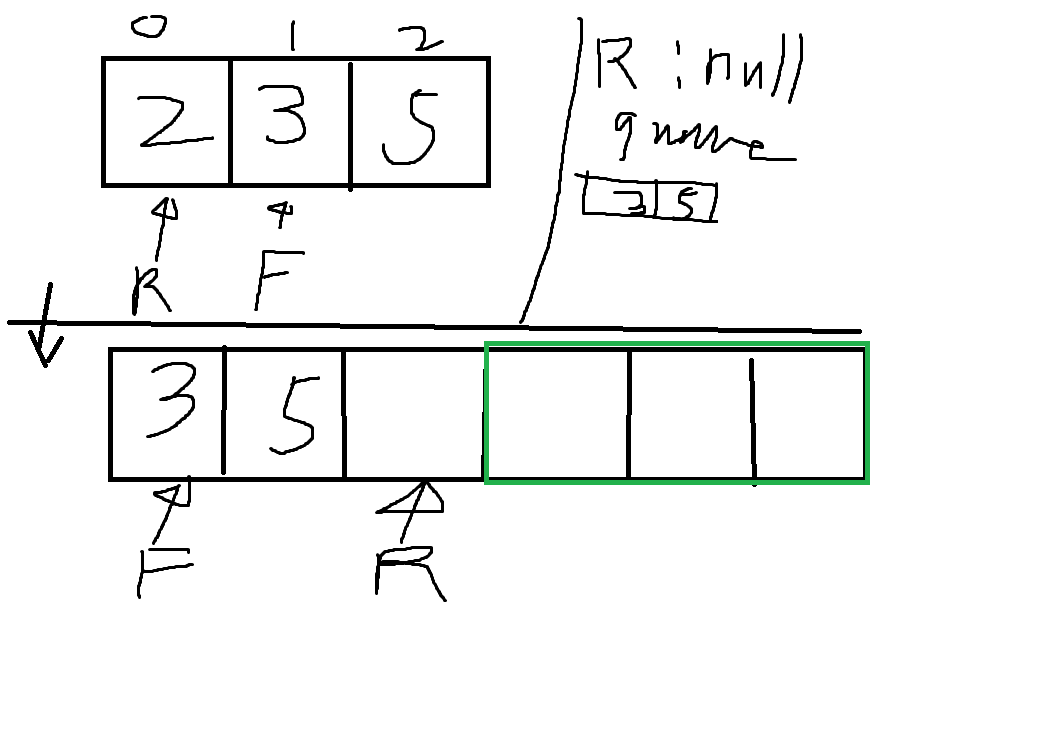 0 1 2
2 3 5
R F
R : null
queue
3 5
3 5
F R